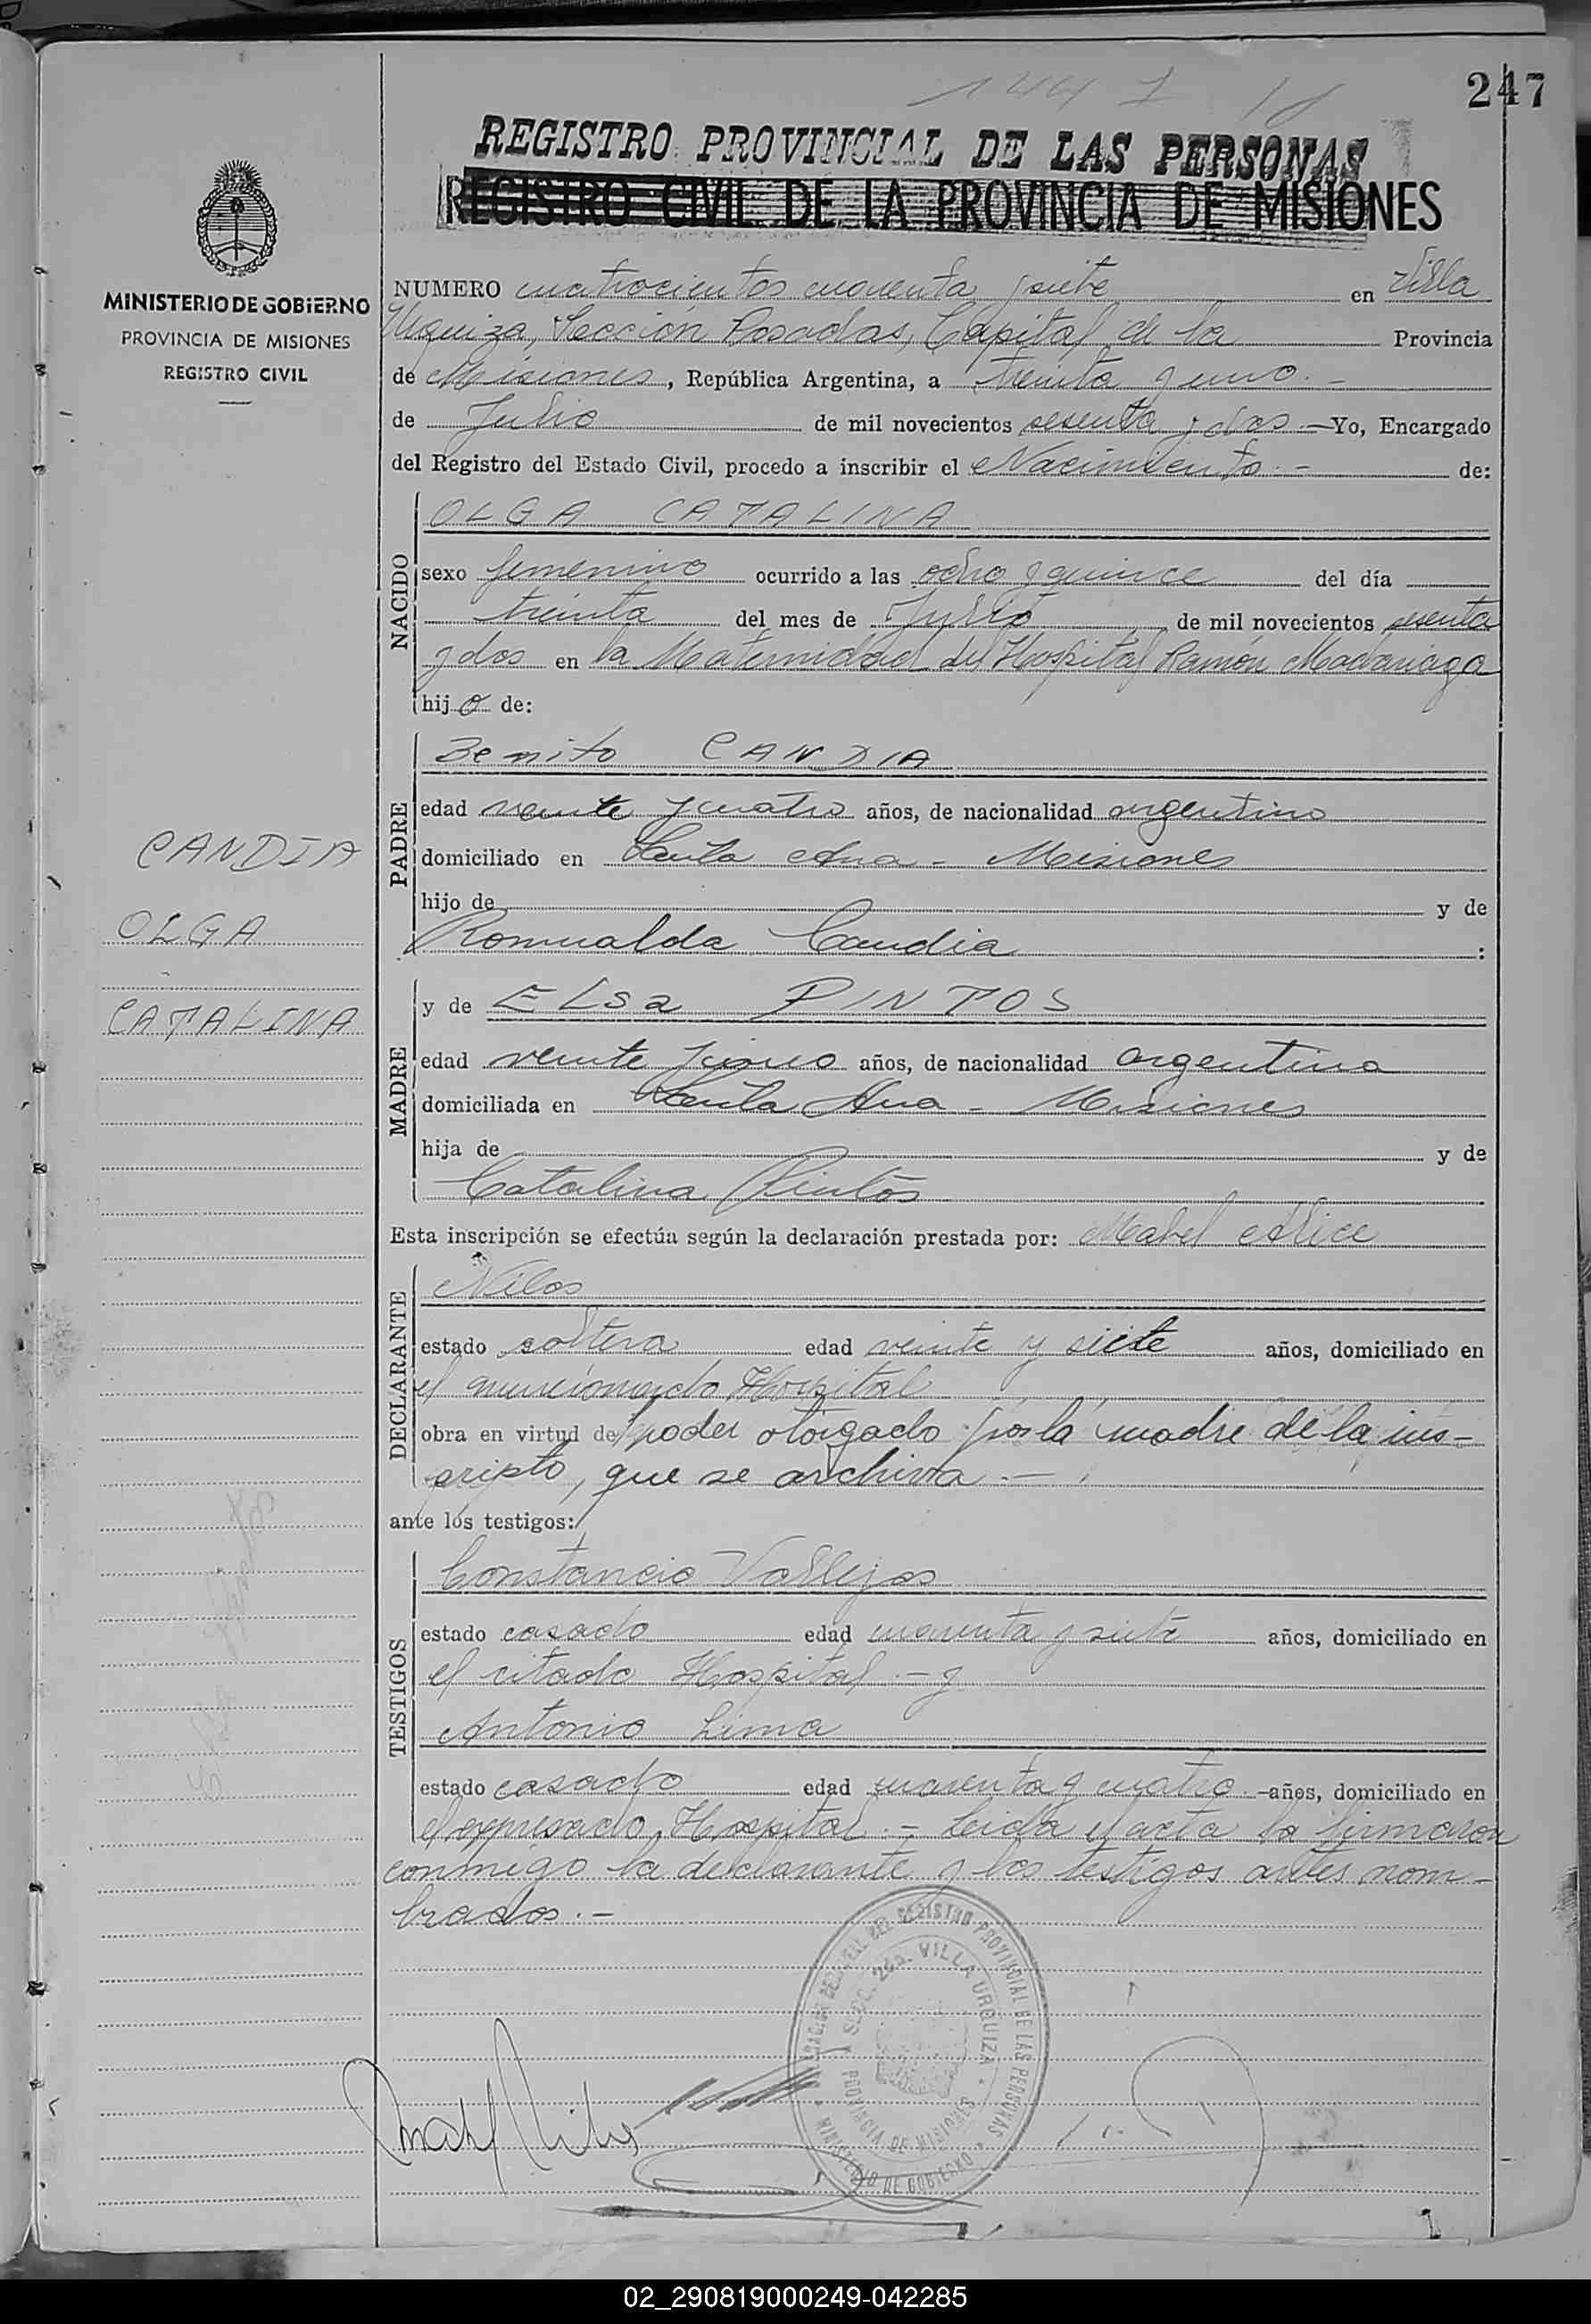 247
REGISTRO PROVINCIAL DE LAS PERSONAS
REGISTRO CIVIL DE LA PROVINCIA DE MISIONES
MINISTERIO DE GOBIERNO
PROVINCIA DE MISIONES
REGISTRO CIVIL
NUMERO cuatrocientos cuarenta y siete en Villa
Urquiza, Sección Posadas, Capital de la Provincia
de Misiones, República Argentina, a treinta y uno.-
de Julio de mil novecientos sesenta y dos.- Yo, Encargado
del Registro del Estado Civil, procedo a inscribir el Nacimiento.- de:
NACIDO
OLGA CATALINA
sexo femenino ocurrido a las ocho y quince del día
treinta del mes de Julio de mil novecientos sesenta
y dos en la Maternidad del Hospital Ramón Madariaga
hijo de:
PADRE
Benito CANDIA
edad veinte y cuatro años, de nacionalidad argentino
domiciliado en Santa Ana - Misiones
hijo de y de
Romualda Candia :
CANDIA
OLGA
CATALINA
MADRE
y de ELsa PINTOS
edad veinte y cinco años, de nacionalidad argentina
domiciliada en Santa Ana - Misiones
hija de y de
Catalina Pintos
Esta inscripción se efectúa según la declaración prestada por: Mabel Alice
DECLARANTE
Nilos
estado soltera edad veinte y siete años, domiciliado en
el mencionado Hospital
obra en virtud de poder otorgado por la madre de la ins-
cripto, que se archiva.-
ante los testigos:
TESTIGOS
Constancio Vallejos
estado casado edad cuarenta y siete años, domiciliado en
el citado Hospital.- y
Antonio Lima
estado casado edad cuarenta y cuatro.- años, domiciliado en
el expresado Hospital.- Leida el acta la firmaron
conmigo la declarante y los testigos antes nom-
brados.-
DEL REGISTRO PROVINCIAL DE LAS PERSONAS
SECC. 2da. VILLA URQUIZA
PROVINCIA DE MISIONES
MINISTERIO DE GOBIERNO
02_290819000249-042285